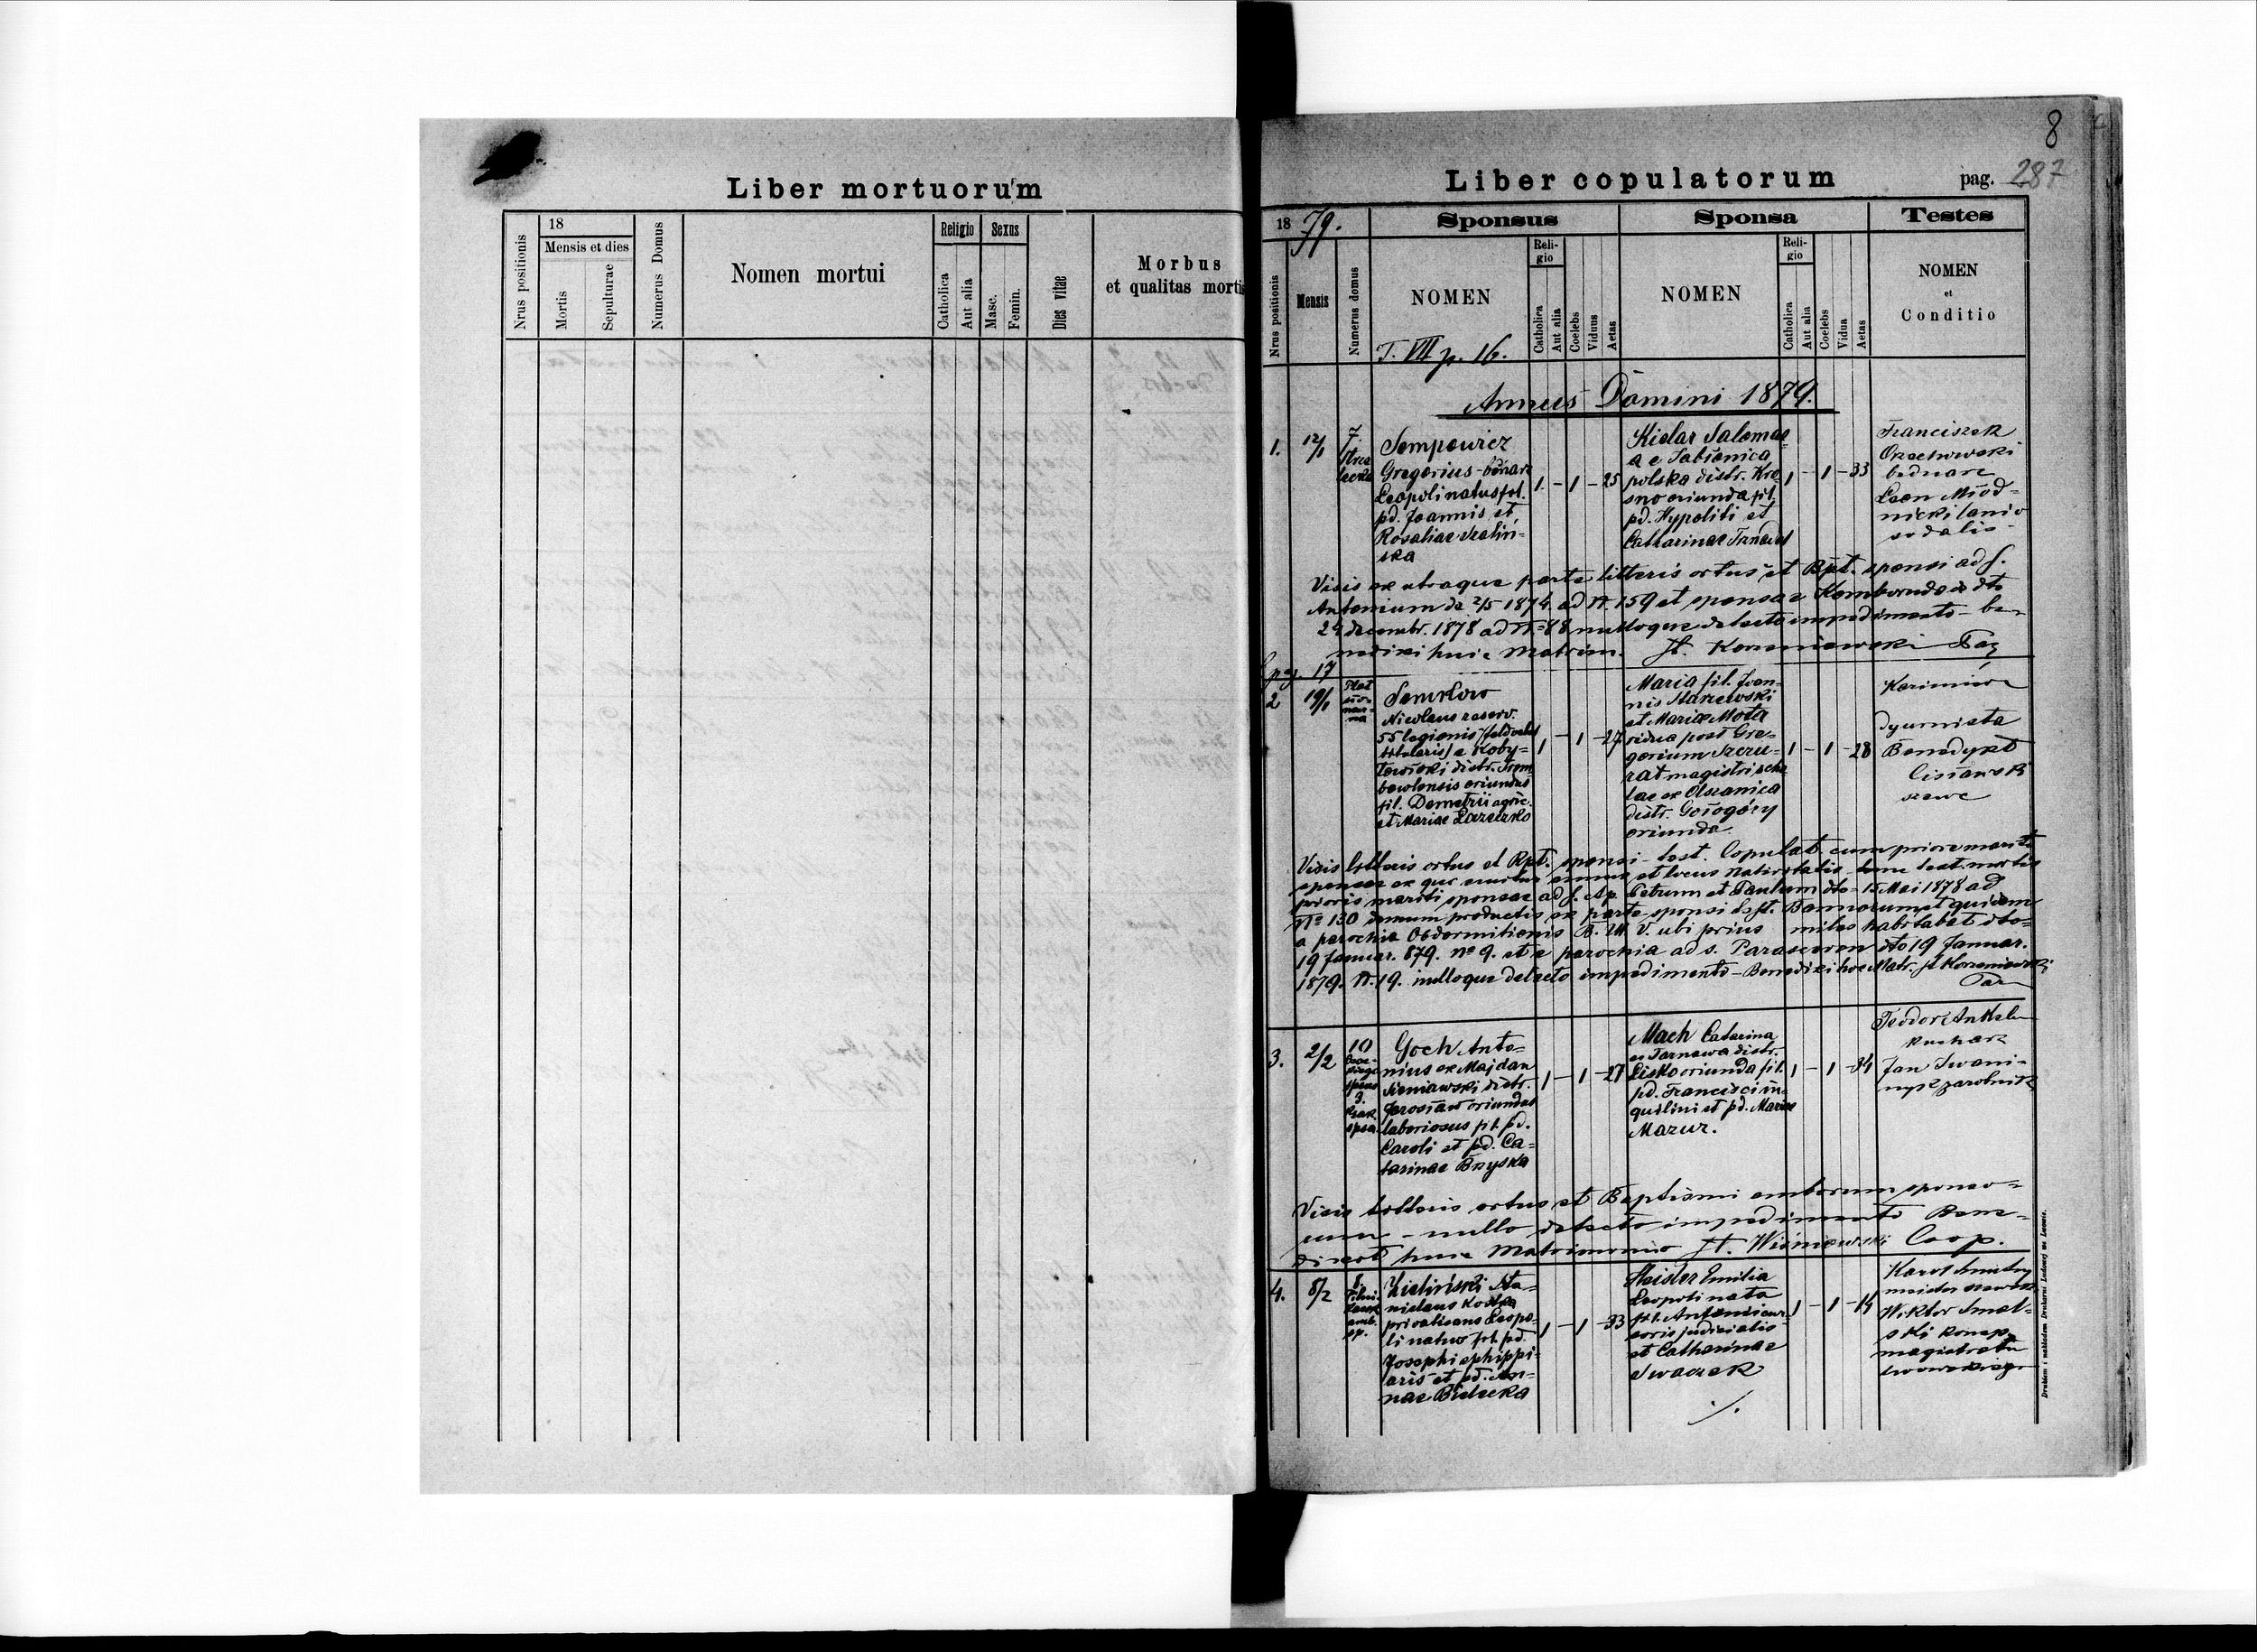 Liber mortuorum
Nrus positionis
18
Mensis et dies
Mortis
Sepulturae
Numerus Domus
Nomen mortui
Religio
Catholica
Aut alia
Sexus
Masc.
Femin.
Dies vitae
Morbus
et qualitas mortis
8
Liber copulatorum
pag. 287
18 79.
Sponsus
Sponsa
Testes
Nrus positionis
Mensis
Numerus domus
NOMEN
Reli-
gio
Catholica
Aut alia
Coelebs
Viduus
Aetas
NOMEN
Reli-
gio
Catholica
Aut alia
Coelebs
Vidua
Aetas
NOMEN
et
Conditio
T. VII p. 16.
Annus Domini 1879.
1.
12/1
7.
Sempowicz
Gregorius - bednarz
Leopoli natus fil.
pd. Joannis et
Rosaliae
ska
1 - 1 - 25
Kielar Salomea
a e Jabłonica
polska distr. Kro-
sno oriunda fil.
pd. Hypoliti et
Catharinae
1 - 1 - 33
Franciszek
Orzechowski
bednarz
Leon Miod-
nicki lanio
sodalis
Visis ex utraque parte litteris ortus et Bpt. sponsi ad S.
Antonium de 2/5 1874 ad N. 159 et sponsae dto
24 decembr. 1878 ad N= 88 nulloque detecto impedimento - be-
nedixi huic Matrim. Korzeniowski Par
pag. 17
2
19/1
Semkow
Nicolaus reserv.
55 legionis
titularis/ e Koby-
distr. Trem-
bowlensis oriundus
fil. Demetrii agric.
et Mariae
1 - 1 - 27
Maria fil. Joan-
nis Starzewski
et Mariae Mota
vidua post Gre-
gorium Szczu-
rat magistri scho
lae ex Olszanica
distr. Gołogóry
oriunda
1 - 1 - 28
Kazimierz
dyurnista
Benedykt
szewc
Visis litteris ortus et Bpt. sponsi - test. Copulat. cum priore marito
sponsae ex quo annus et locus nativitatis tum test. mortis
prioris mariti sponsae ad S. Ap. Petrum et Paulum dto 15 Mai 1878 ad
N= 130 productis ex parte sponsi Bannorum et quidem
a parochia Obdormitionis B. M. V. ubi prius miles habitabat dto
19 Januar. 879. No 9. et e parochia ad s. Parasceven dto 19 Januar.
1879. N. 19. nulloque detecto impedimento - Benedixi hoc Matr. Korzeniowski
Par
3.
2/2
10
Goch Anto-
nius ex Majdan
Sieniawski distr.
Jarosław oriundus
laboriosus fil. pd.
Caroli et pd. Ca-
tarinae Bryska
1 - 1 - 27
Mach Catarina
ex Tarnawa distr.
Lisko oriunda fil.
pd. Francisci in-
quilini et pd. Mariae
Mazur.
1 - 1 - 34
Teodor
kucharz
Jan Iwani-
zarobnik
Visis litteris ortus et Baptismi amborum sponso-
rum - nullo detecto impedimento Bene-
dixit huic Matrimonio Wiśniowski Coop.
4.
8/2
Zieliński Sta-
nislaus Kostka
privatisans Leopo-
li natus fil. pd.
Josephi ephippi-
aris et pd. An-
nae Bielecka
1 - 1 - 33
Emilia
Leopoli nata
fil. Antonii cur-
soris judicialis
et Catharinae
Swaczek
./.
Karol
Wiktor Smol-
ski
magistratu
lwowskiego
Drukiem i nakładem Drukarni Ludowej we Lwowie.